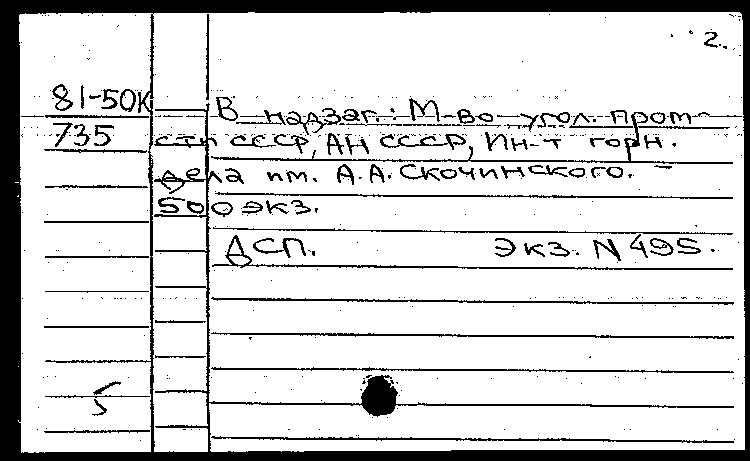 2.
81-50К В надзаг.: М-во угол. пром-
735 сти СССР, АН СССР, Ин-т горн.
дела им. А.А. Скочинского. –
500 экз.
ДСП. Экз. N 495.
5